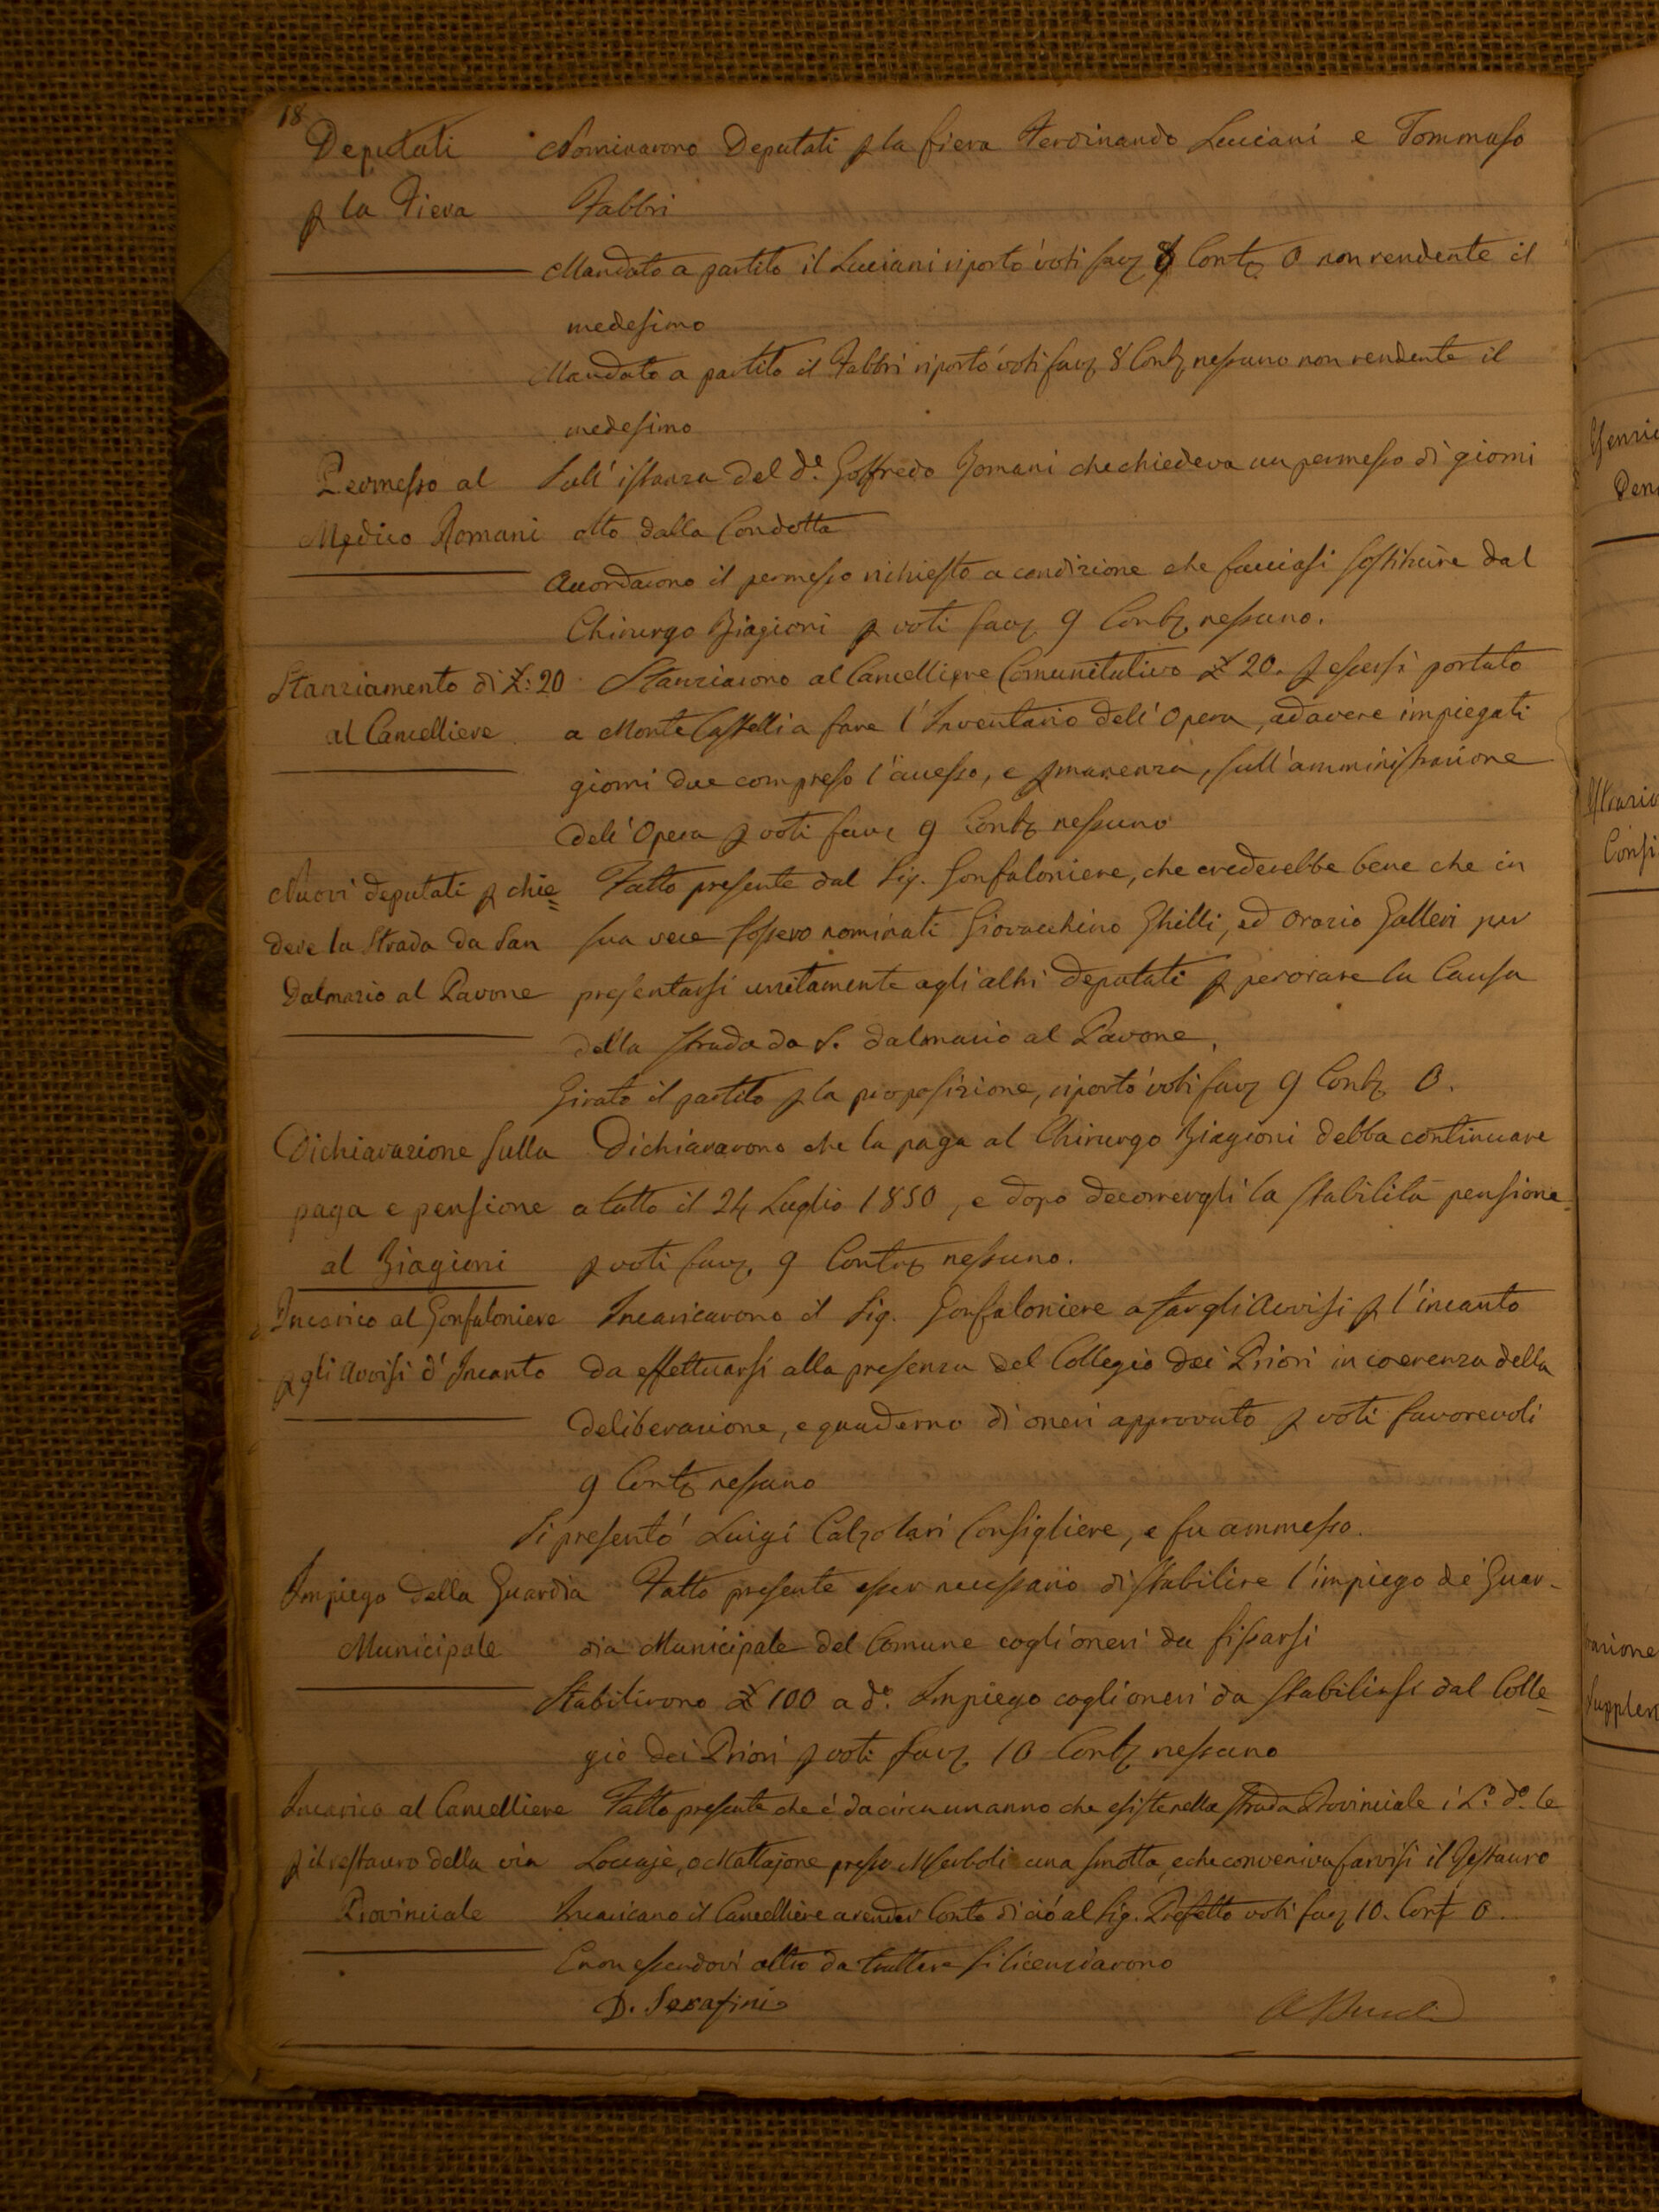 18
Deputati
p la Fiera
Nominarono Deputati p la fiera Ferdinando Luciani e Tommaso
Fabbri
Mandato a partito il Luciani riportò voti fav 8 Cont 0 non rendente il
medesimo
Mandato a partito il Fabbri riportò voti fav 8 Cont nessuno non rendente il
medesimo
Permesso al
Medico Romani
Sull'istanza del d.e Goffredo Romani che chiedeva un permesso di giorni
otto dalla Condotta
Accordarono il permesso richiesto a condizione che facciasi sostituire dal
Chirurgo Biagioni p voti fav 9 Cont nessuno.
Stanziamento di £: 20
al Cancelliere
Stanziarono al Cancelliere Comunitativo £ 20. p essersi portato
a Monte Castelli a fare l'Inventario dell'Opera, ad avere impiegati
giorni due compreso l'accesso, e pmanenza, sull'amministrazione
dell'Opera p voti fav 9 Cont nessuno
Nuovi deputati p chie=
dere la Strada da San
Dalmazio al Pavone
Fatto presente dal Sig. Gonfaloniere, che crederebbe bene che in
sua vece fossero nominati Giovacchino Ghilli, ed Orazio Galleri per
presentarsi unitamente agli altri Deputati p perorare la Causa
della strada da S. Dalmazio al Pavone,
Girato il partito p la proposizione, riportò voti fav 9 Cont 0.
Dichiarazione sulla
paga e pensione
al Biagioni
Dichiararono che la paga al Chirurgo Biagioni debba continuare
a tutto il 24 Luglio 1850, e dopo decorrergli la stabilita pensione
p voti fav. 9 Cont nessuno.
Incarico al Gonfaloniere
p gli Avvisi d'Incanto
Incaricarono il Sig. Gonfaloniere a far gli Avvisi p l'incanto
da effettuarsi alla presenza del Collegio dei Priori in coerenza della
deliberazione, e quaderno di oneri approvato p voti favorevoli
9 Cont nessuno
Si presentò Luigi Calzolari Consigliere, e fu ammesso.
Impiego della Guardia
Municipale
Fatto presente esser necessario di stabilire l'impiego de Guar-
dia Municipale del Comune cogli oneri da fissarsi
Stabilirono £ 100 a d.o Impiego cogli oneri da stabilirsi dal Colle=
gio dei Priori p voti fav 10 Cont nessuno
Incarico al Cancelliere
p il restauro della via
Provinciale
Fatto presente che è da circa un anno che esiste nella strada Provinciale i L.o d.o le
o Mattajone presso una smotta, e che conveniva farvisi il Restauro
Incaricano il Cancelliere a render Conto di ciò al Sig. Prefetto voti fav 10. Cont 0.
E non essendovi altro da trattare si licenziarono
D. Serafini